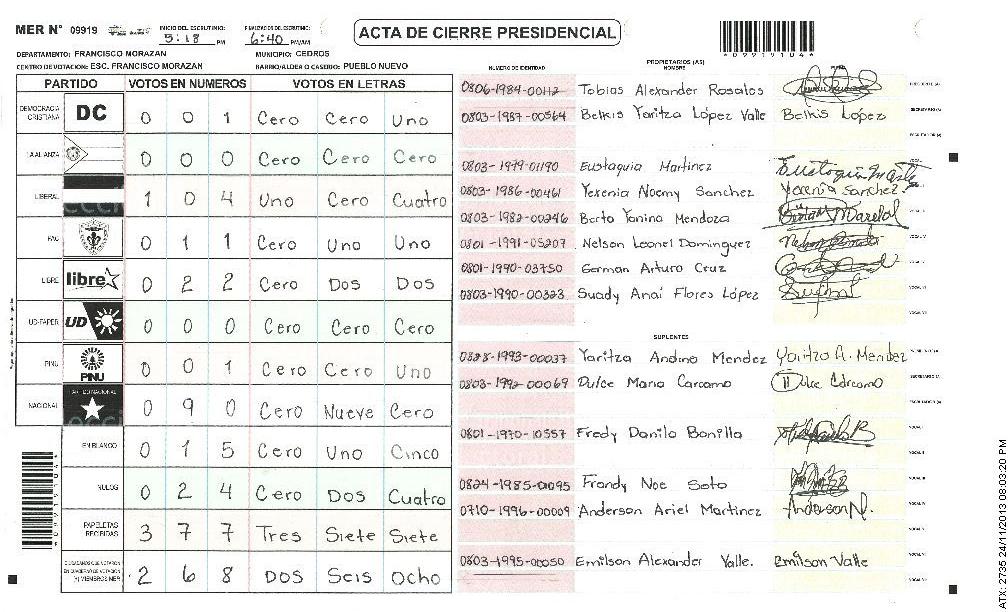 MER N° 09919 INICIO DEL ESCRUTINIO: 5:18 PM FINALIZACION DEL ESCRUTINIO: 6:40 PM/AM
ACTA DE CIERRE PRESIDENCIAL
*09919104*
DEPARTAMENTO: FRANCISCO MORAZAN MUNICIPIO: CEDROS
CENTRO DE VOTACION: ESC. FRANCISCO MORAZAN BARRIO/ALDEA O CASERIO: PUEBLO NUEVO
PARTIDO VOTOS EN NUMEROS VOTOS EN LETRAS
DEMOCRACIA CRISTIANA DC 0 0 1 Cero Cero Uno
LA ALIANZA 0 0 0 Cero Cero Cero
LIBERAL 1 0 4 Uno Cero Cuatro
PAC 0 1 1 Cero Uno Uno
LIBRE libre 0 2 2 Cero Dos Dos
UD-FAPER UD 0 0 0 Cero Cero Cero
PINU PINU 0 0 1 Cero Cero Uno
NACIONAL 0 9 0 Cero Nueve Cero
EN BLANCO 0 1 5 Cero Uno Cinco
NULOS 0 2 4 Cero Dos Cuatro
PAPELETAS RECIBIDAS 3 7 7 Tres Siete Siete
CIUDADANOS QUE VOTARON EN CUADERNO DE VOTACION (+) MIEMBROS MER 2 6 8 DOS Seis Ocho
PROPIETARIOS (AS)
NUMERO DE IDENTIDAD NOMBRE FIRMA
0806-1984-00112 Tobias Alexander Rosales PRESIDENTE(A)
0803-1987-00564 Belkis Yaritza López Valle Belkis López SECRETARIO(A)
ESCRUTADOR (A)
0803-1979-01190 Eustaquia Martinez VOCAL I
0803-1986-00461 Yexenia Noemy Sanchez Yexenia Sanchez VOCAL II
0803-1982-00246 Berta Yanina Mendoza VOCAL III
0801-1991-05207 Nelson Leonel Dominguez VOCAL IV
0801-1990-03750 German Arturo Cruz VOCAL V
0803-1990-00323 Suady Anai Flores López VOCAL VI
VOCAL VII
SUPLENTES
0828-1993-00037 Yaritza Andino Mendez Yaritza A. Mendez PRESIDENTE(A)
0803-1992-00069 Dulce Maria Carcamo Dulce Carcamo SECRETARIO (A)
ESCRUTADOR (A)
0801-1970-10557 Fredy Danilo Bonilla VOCAL I
VOCAL II
0824-1985-01095 Frandy Noe Soto VOCAL III
0710-1996-00009 Anderson Ariel Martinez Anderson VOCAL IV
VOCAL V
0803-1995-00050 Emilson Alexander Valle. Emilson Valle VOCAL VI
VOCAL VII
ATX: 2735 24/11/2013 08:03:20 PM